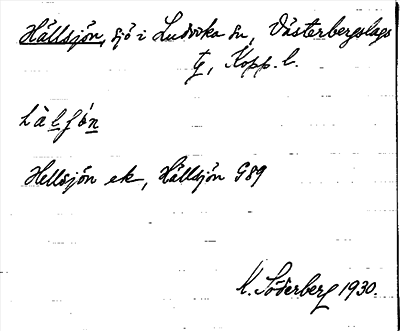 Hällsjön, sjö i Ludvika sn, Västerbergslags
tg, Kopp. l.
hälʃön
Hellsjön ek, Hällsjön G89
K. Söderberg 1930.